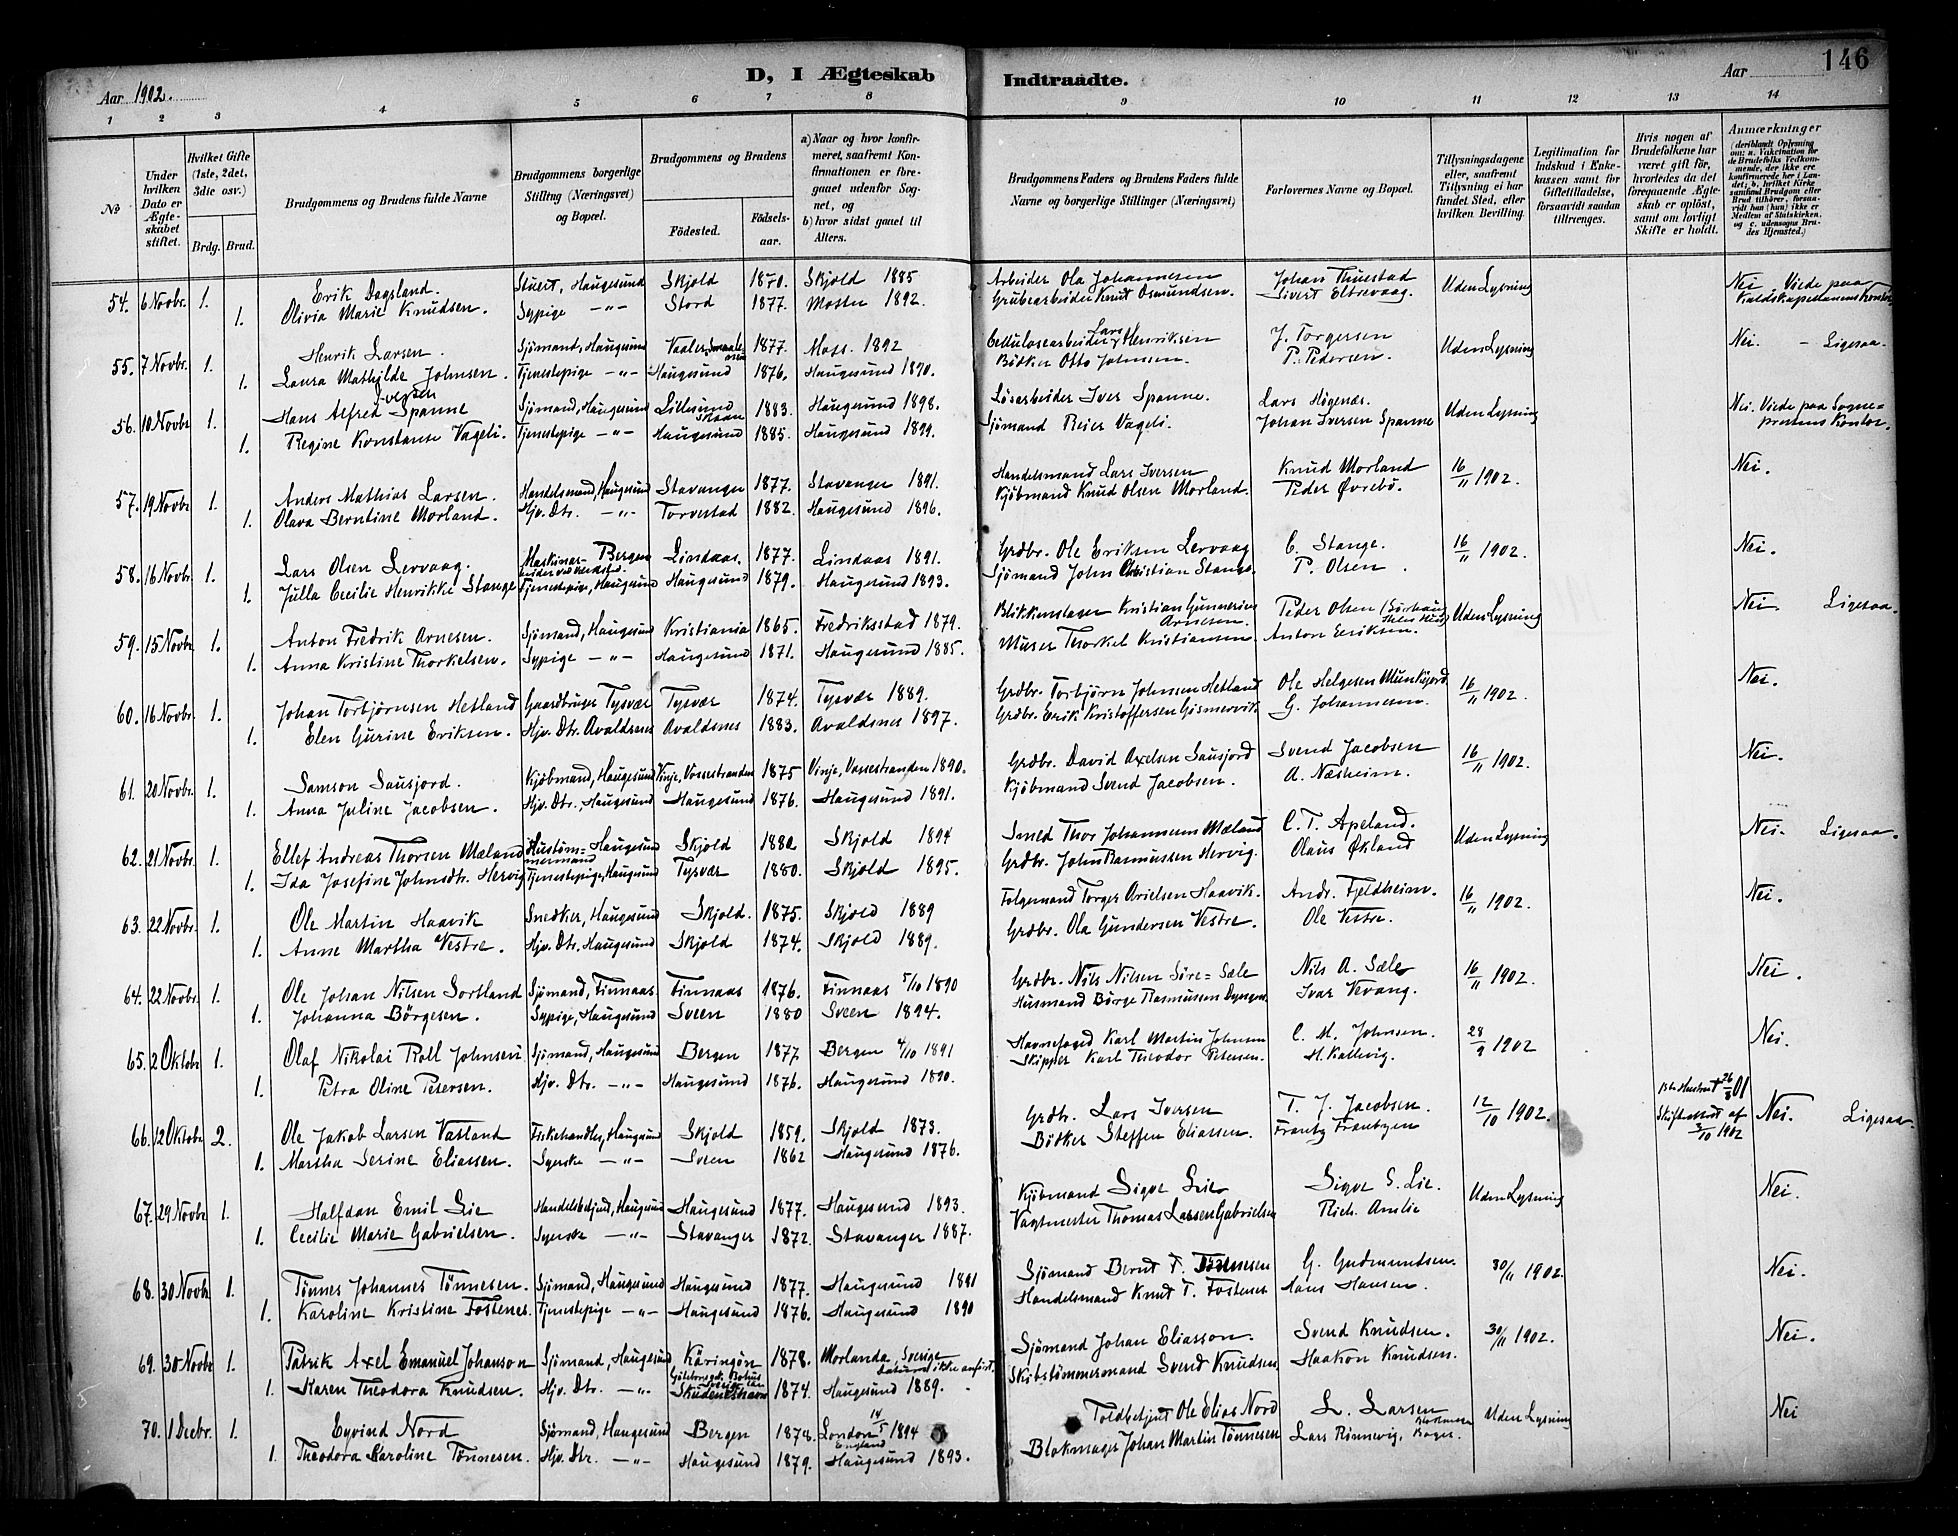 D, I Ægteskab Indtraadte.
Aar 1902.
Aar
146
1 2 3 4 5 6 7 8 9 10 11 12 13 14
№
Under hvilken Dato er Ægteskabet stiftet.
Hvilket Gifte (1ste, 2det, 3die osv.)
Brdg. Brud.
Brudgommens og Brudens fulde Navne
Brudgommens borgerlige Stilling (Næringsvei) og Bopæl.
Brudgommens og Brudens
Födested.
Födsels-aar.
a) Naar og hvor konfirmeret, saafremt Konfirmationen er foregaaet udenfor Sognet, og
b) hvor sidst gaaet til Alters.
Brudgommens Faders og Brudens Faders fulde Navne og borgerlige Stillinger (Næringsvei)
Forlovernes Navne og Bopæl.
Tillysningsdagene eller, saafremt Tillysning ei har fundet Sted, efter hvilken Bevilling.
Legitimation for Indskud i Enkekassen samt for Giftetilladelse, forsaavidt saadan tiltrænges.
Hvis nogen af Brudefolkene har været gift för, hvorledes da det foregaaende Ægteskab er oplöst, samt om lovligt Skifte er holdt.
Anmærkninger (deriblandt Oplysning om: a. Vakcination for de Brudefolks Vedkommende, der ikke ere konfirmerede her i Landet; b. hvilket Kirkesamfund Brudgom eller Brud tilhörer, forsaavidt han (hun) ikke er Medlem af Statskirken, og c. udensogns Brudes Hjemsted.)
54. 6 Novbr. 1. Erik Dagsland. Stuert, Haugesund Skjold 1870. Skjold 1885 Arbeider Ola Johannesen Johan Thuestad Uden Lysning Nei Viede paa
1. Olivia Marie Knudsen. Sypige -"- Stord 1877. Moster 1892. Grubearbeider Knut Osmundsen. Sivert Eltrevaag. Kaldskapellanens Kontor
55. 7 Novbr. 1. Henrik Larsen. Sjömand, Haugesund Vaaler Smaalenene 1877. Moss. 1892 Cellulosearbeider Lars Henriksen J. Torgersen Uden Lysning Nei. - Ligesaa.
1. Laura Mathilde Johnsen. Tjenestepige -"- Haugesund 1876. Haugesund 1890. Bötker Otto Johnsen. P. Pedersen.
56. 10 Novbr 1. Hans Alfred Iversen Spanne Sjömand, Haugesund Lillesund Skaare 1883. Haugesund 1898. Lösarbeider Iver Spanne. Lars Högenæs. Uden Lysning Nei. Viede paa Sogne=
1. Regine Konstanse Vageli. Tjenestepige -"- Haugesund 1885. Haugesund 1899. Sjömand Reier Vageli. Johan Iversen Spanne prestens Kontor.
57. 19 Novbr 1. Anders Mathias Larsen. Handelsmand, Haugesund Stavanger 1877. Stavanger 1891. Handelsmand Lars Iversen Knud Morland 16/11 1902. Nei.
1. Olava Berntine Morland. Hjv. Dtr. -"- Torvestad 1882. Haugesund 1896. Kjöbmand Knud Olsen Morland. Peder Øvrebö.
58. 16 Novbr. 1. Lars Olsen Lervaag. Maskinar- Bergen Lindaas. 1877. Lindaas 1891. Grdbr. Ole Eriksen Lervaag C. Stange. 16/11 1902. Nei.
1. Julla Cecilie Henrikke Stange Tjenestepige, Haugesund Haugesund 1879. Haugesund 1893. Sjömand John Christian Stange. P. Olsen.
59. 15 Novbr 1. Anton Fredrik Arnesen. Sjömand, Haugesund Kristiania 1865. Fredriksstad 1879. Blikkenslager Kristian Gunnerius Arnesen. Peder Olsen Uden Lysning Nei. Ligesaa.
1. Anna Kristine Thorkelsen. Sypige -"- Haugesund 1871. Haugesund 1885. Murer Thorkel Kristiansen Anton Eriksen.
60. 16 Novbr. 1. Johan Torbjörnsen Hetland Gaardbruger Tysvær Tysvær 1874. Tysvær 1889. Grdbr. Torbjörn Johnsen Hetland Ole Helgesen Munkejord 16/11 1902. Nei.
1. Elen Gurine Eriksen. Hjv. Dtr. Avaldsnes Avaldsnes 1883. Avaldsnes 1897. Grdbr. Erik Kristoffersen Gismervik. G. Johannesen.
61. 20 Novbr. 1. Samson Sausjord. Kjöbmand, Haugesund Vinje, Vossestranden 1875 Vinje, Vossestranden 1890. Grdbr. David Axelsen Sausjord Svend Jacobsen 16/11 1902. Nei.
1. Anna Juline Jacobsen. Hjv. Dtr., Haugesund Haugesund 1876. Haugesund 1891. Kjöbmand Svend Jacobsen. A. Næsheim.
62. 21 Novbr. 1. Ellef Andreas Thorsen Mæland Hustöm- Haugesund mermand Skjold 1880. Skjold 1894 Smed Thor Johannesen Mæland C. T. Apeland. Uden Lysning Nei. Ligesaa.
1. Ida Josefine Johnsdtr. Hervig Tjenestepige, Haugesund Tysvær 1880. Skjold 1895. Grdbr. John Rasmussen Hervig. Olaus Økland
63. 22 Novbr. 1. Ole Martin Haavik Snedker, Haugesund Skjold. 1875. Skjold 1889 Fölgemand Torger Haavik. Andr. Fjeldheim. 16/11 1902. Nei.
1. Anne Martha Vestre. Hjv. Dtr. Haugesund Skjold 1874. Skjold 1889. Grdbr. Ola Gundersen Vestre. Ole Vestre.
64. 22 Novbr. 1. Ole Johan Nilsen Sortland Sjömand, Finnaas. Finnaas 1876. Finnaas 5/10 1890 Grdbr. Nils Nilsen Söre=Sæle Nils A. Sæle 16/11 1902. Nei.
1. Johanna Börgesen. Sypige, Haugesund Sveen 1880 Sveen 1894. Husmand Börge Rasmussen Ivar Vevang.
65. 2 Oktobr 1. Olaf Nikolai Roll Johnsen Sjömand, Haugesund Bergen 1877 Bergen 4/10 1891 Havnefoged Karl Martin Johnsen C. M. Johnsen. 28/9 1902 Nei.
1. Petra Oline Petersen. Hjv. Dtr. -"- Haugesund 1876. Haugesund 1890. Skipper Karl Theodor Petersen. H. Kallevig.
66. 12 Oktobr 2. Ole Jakob Larsen Vatland Fiskehandler, Haugesund Skjold 1859. Skjold 1873. Grdbr. Lars Iversen T. J. Jacobsen. 12/10 1902. Hustru † 26/8 01 Nei. Ligesaa.
1. Martha Serine Eliassen. Syerske -"- Sveen 1862 Haugesund 1876. Bötker Steffen Eliassen. Frantz Frantzen Skifteattest af 3/10 1902
67. 29 Novbr 1. Halfdan Emil Lie Handelsbetjend, Haugesund Haugesund 1877. Haugesund 1893. Kjöbmand Sigve Lie Sigve S. Lie. Uden Lysning Nei.
1. Cecilie Marie Gabrielsen. Syerske -"- Stavanger 1872. Stavanger 1887. Vagtmester Thomas Larsen Gabrielsen Rich. Amlie
68. 30 Novbr 1. Tönnes Johannes Tönnesen. Sjömand, Haugesund Haugesund 1877. Haugesund 1891 Sjömand Bernt T. Tönnesen G. Gudmundsen. 30/11 1902. Nei.
1. Karoline Kristine Fostenes. Tjenestepige -"- Haugesund 1876. Haugesund 1890 Handelsmand Knut T. Fostenes Hans Hansen.
69. 30 Novbr 1. Patrik Axel Emanuel Johanson Sjömand, Haugesund Käringön Göteborgs & Bohus Sverige Län 1878. Morlanda, Sverige datum ikke anfört. Sjömand Johan Eliasson. Svend Knudsen. 30/11 1902. Nei.
1. Karen Theodora Knudsen. Hjv. Dtr. -"- Skudeneshavn 1874. Haugesund 1889. Skibstömmermand Svend Knudsen Haakon Knudsen.
70. 1 Decbr. 1. Eyvind Nord Sjömand, Haugesund Bergen 1878. London 14/5 1894 England Toldbetjent Ole Elias Nord L. Larsen Uden Lysning Nei
1. Theodora Karoline Tönnesen. Hjv. Dtr. -"- Haugesund 1879. Haugesund 1893. Blokmager Johan Martin Tönnesen Lars Rönnevig,